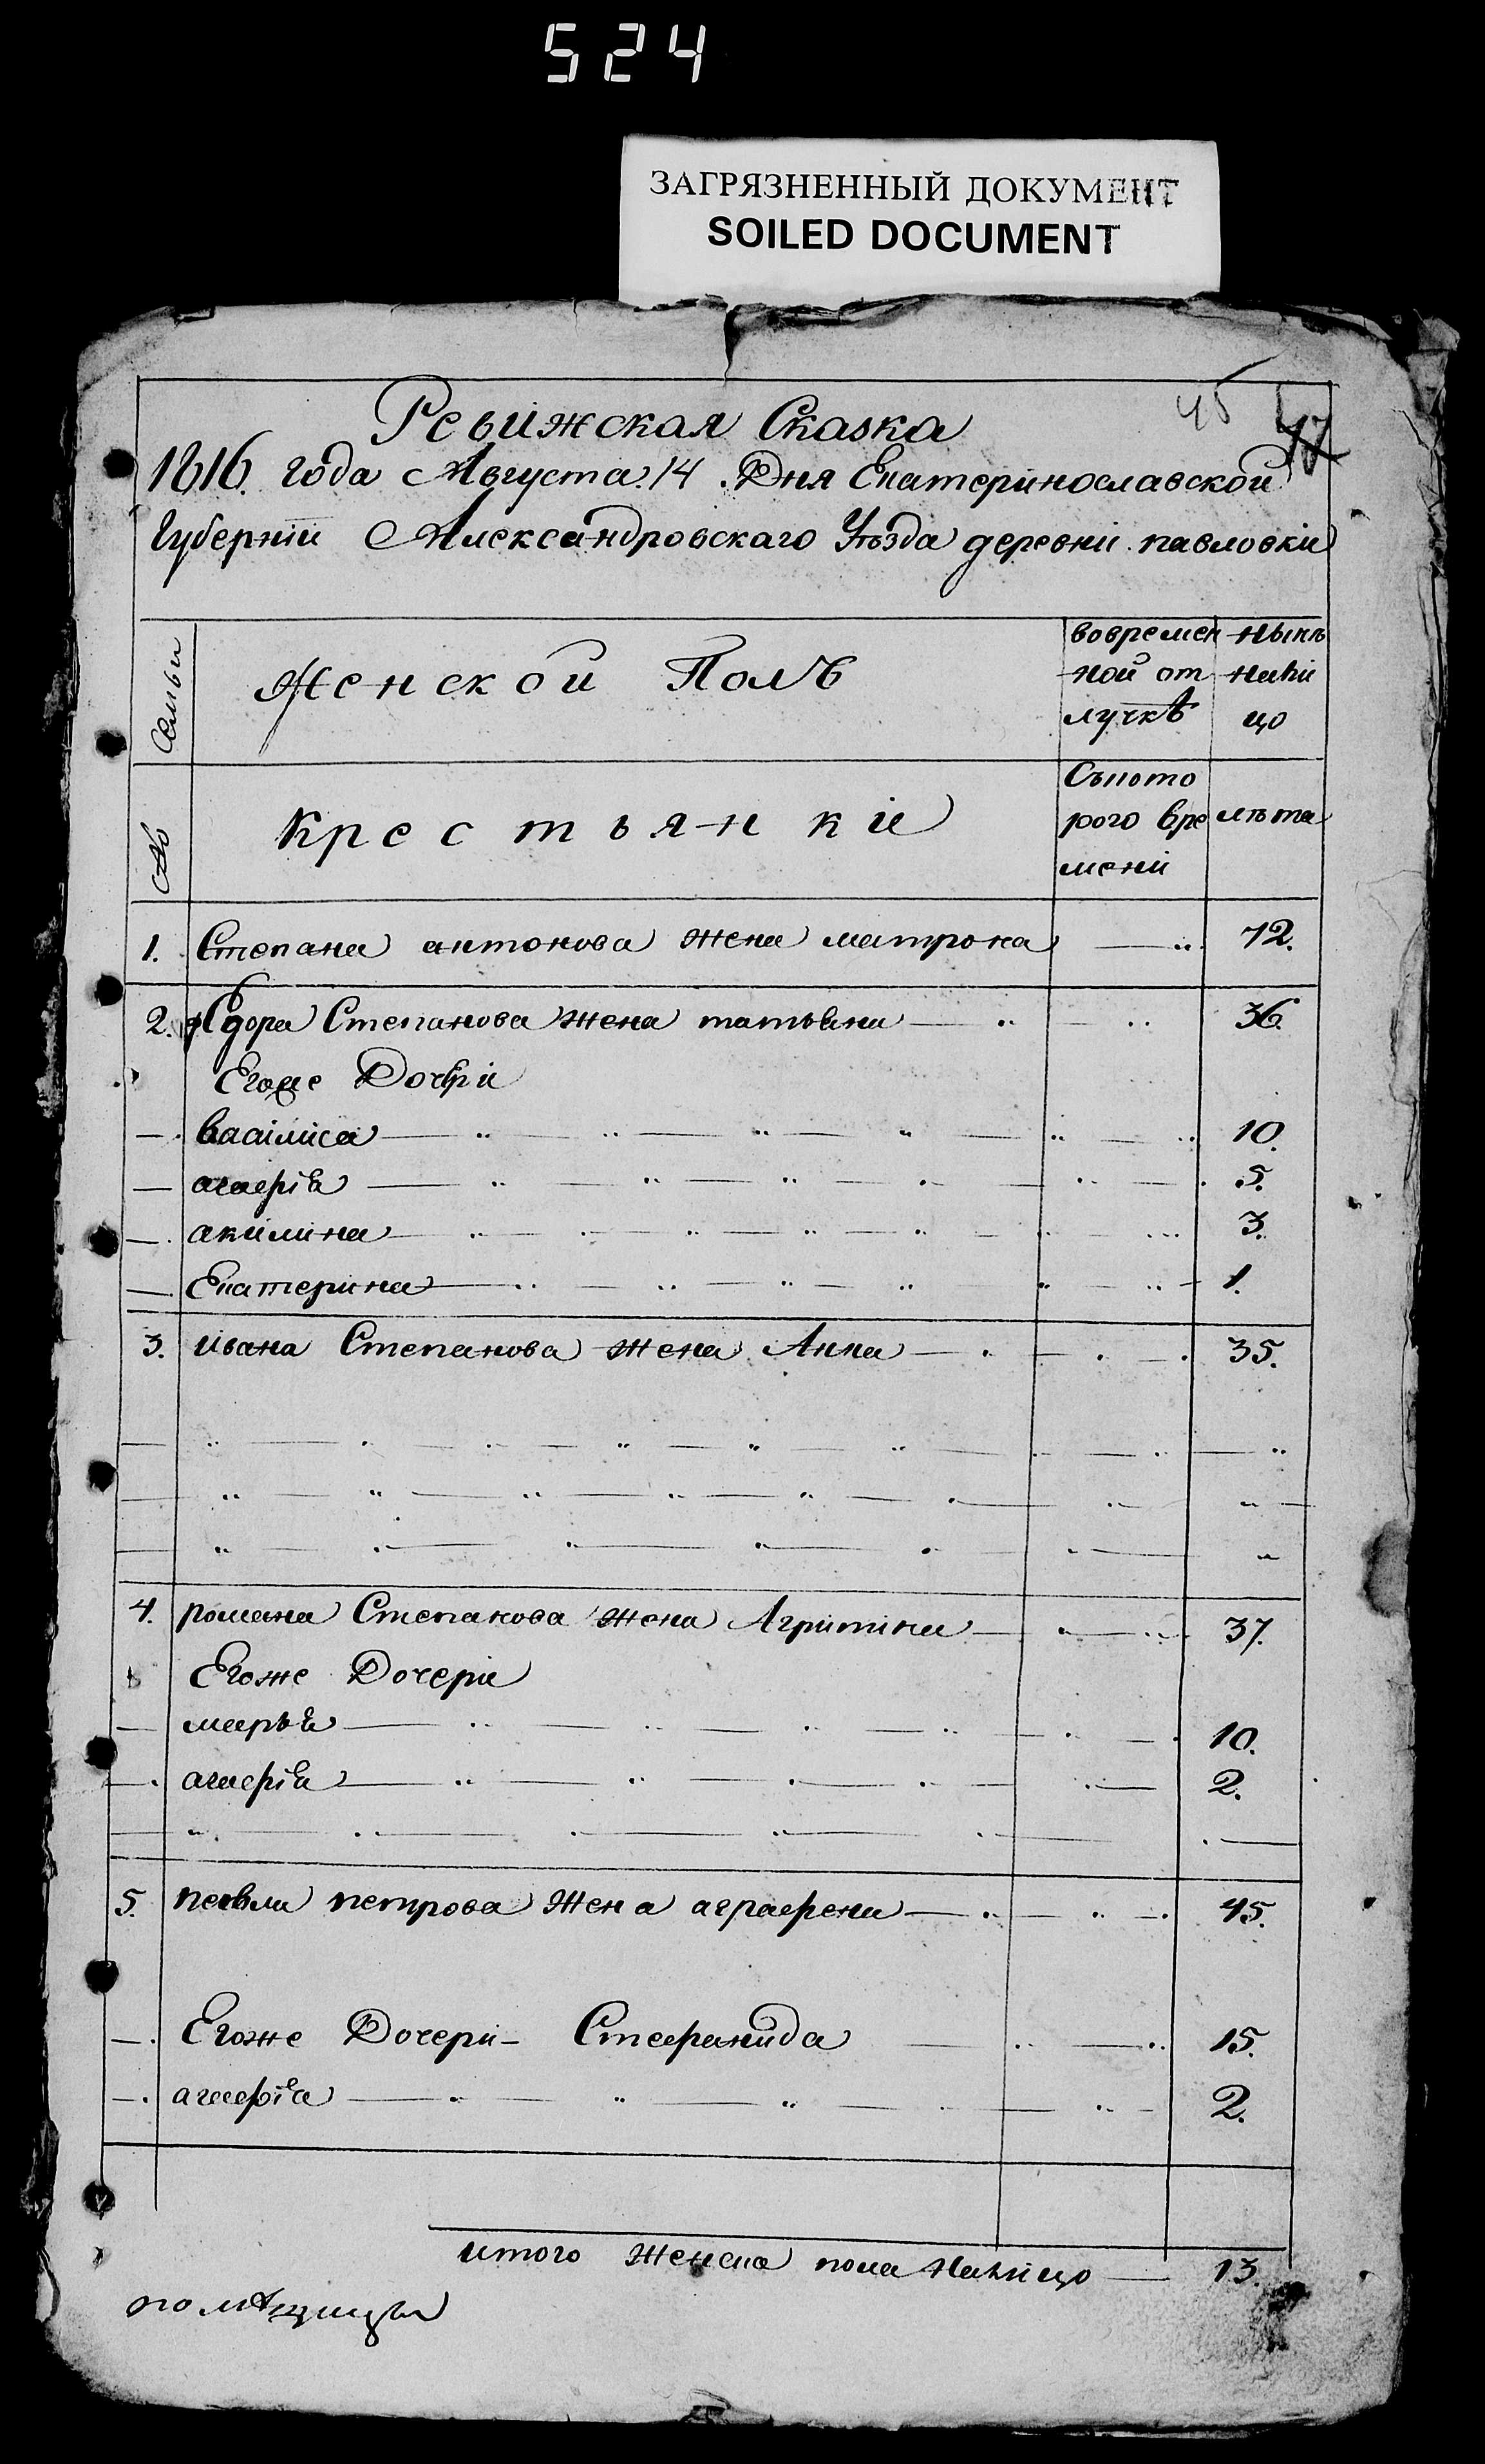 524
ЗАГРЯЗНЕННЫЙ ДОКУМЕНТ
SOILED DOCUMENT
45 47
Ревижская Сказка
1816. года Августа 14 Дня Екатеринославской
Губерніи Александровскаго Уѣзда деревні павловкі
Семьи Женской Полъ вовремен ной от лучкѣ нынѣ налі цо
№ Крестьянкі Съкото рого вре мені лѣта
1. Степана антонова жена матрона 72.
2. Ѳедора Степанова жена татьяна 36.
Егоже Дочері
васіліса 10.
агафія 5.
акилина 3.
Екатерина 1.
3. ивана Степанова жена Анна 35.
4. романа Степанова жена Агрипіна 37.
Егоже Дочери
марья 10.
агафія 2.
5. павла петрова жена аграфена 45.
Егоже Дочери Стефанида 15.
агафія 2.
итого женска пола налицо 13.
помѣщицы